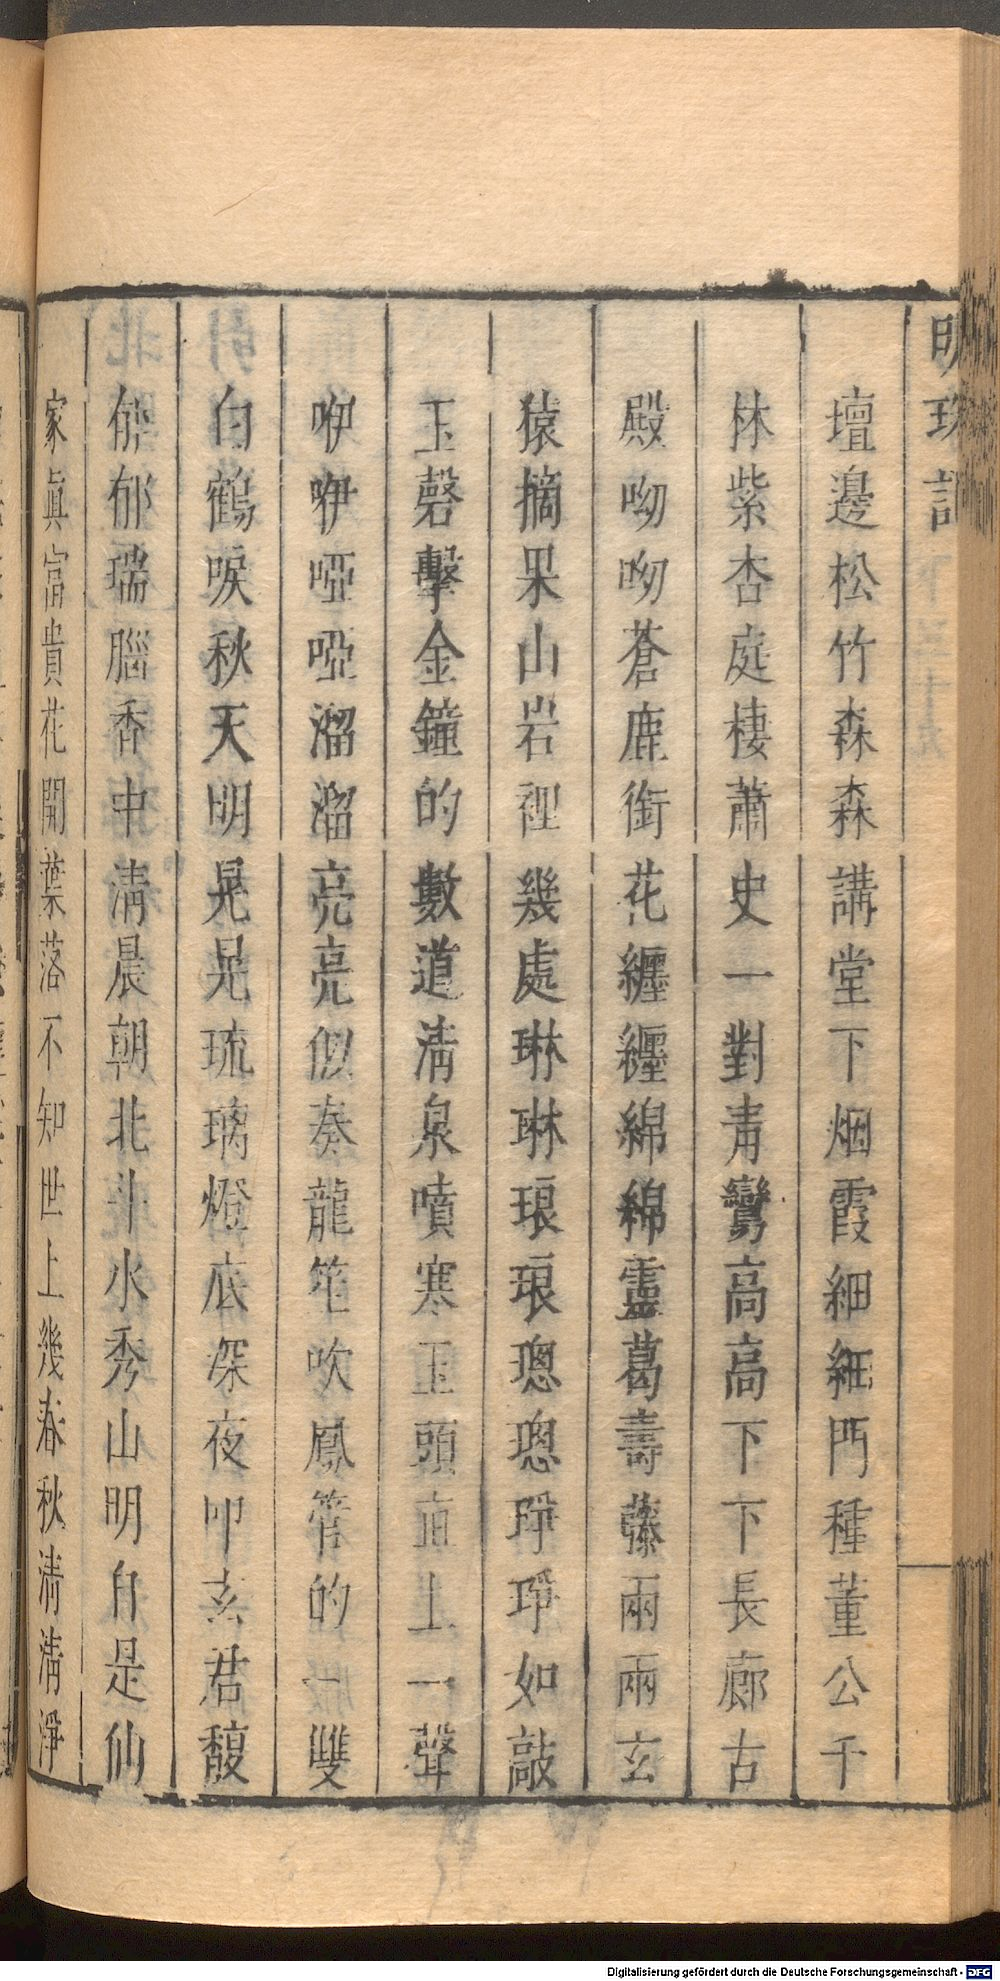 明珠記
壇邊松竹森森講堂下烟霞細細門種董公千
林紫杏庭棲蕭史一對靑鸞高高下下長廊古
殿呦呦蒼鹿銜花纏纏綿綿靈葛壽藤兩兩玄
猿摘果山岩裡幾處琳琳琅琅璁璁琤琤如敲
玉磬擊金鐘的數道淸泉噴寒玉頭直上一聲
咿咿啞啞溜溜亮亮似奏龍笙吹鳳管的一雙
白鶴唳秋天明晃晃琉璃燈底深夜叩玄君馥
郁郁瑞腦香中淸晨朝北斗水秀山明自是仙
家眞富貴花開葉落不知世上幾春秋淸淸淨
Digitalisierung gefördert durch die Deutsche Forschungsgemeinschaft - DFG